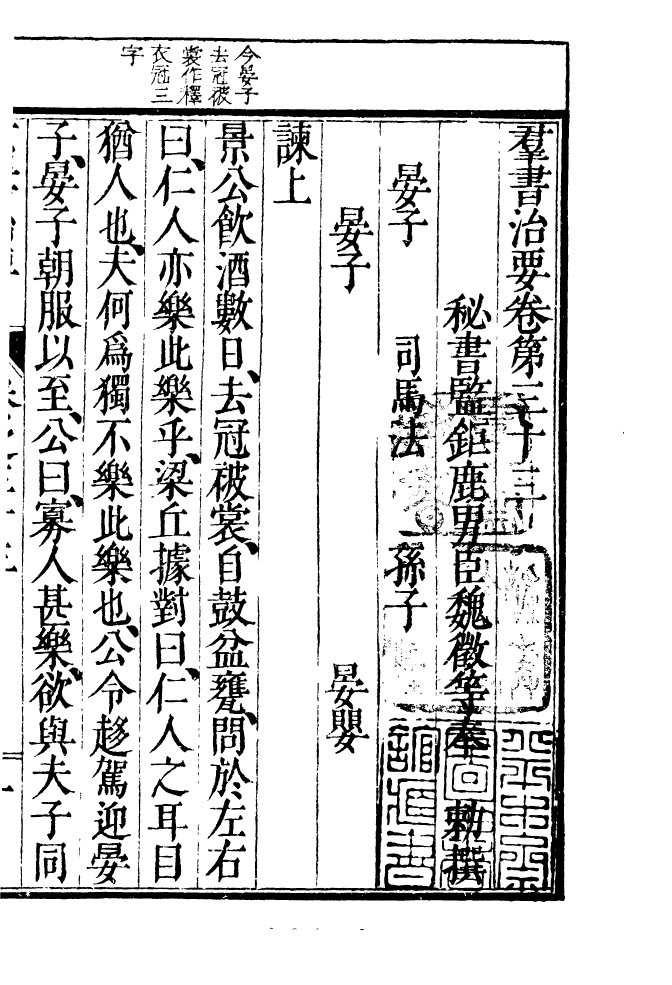 今晏子
去冠被
裳作釋
衣冠三
字
羣書治要卷第三十三
秘書監鉅鹿男臣魏徵等奉　勅撰
晏子　司馬法　孫子
晏子　晏嬰
諫上
景公飲酒數日、去冠被裳、自鼓盆甕、問於左右
曰、仁人亦樂此樂乎、梁丘據對曰、仁人之耳目
猶人也、夫何爲獨不樂此樂也、公令趍駕迎晏
子、晏子朝服以至、公曰、寡人甚樂、欲與夫子同